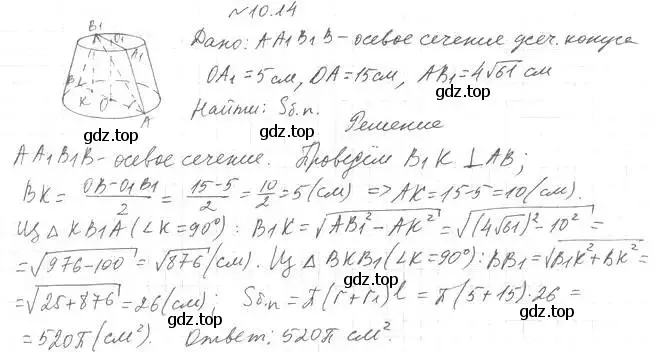 №10.14
B₁ O₁ A₁
B K O A
Дано: AA₁B₁B - осевое сечение усеч. конуса
OA₁ = 5 см, OA = 15 см, AB₁ = 4√61 см
Найти: Sб.п.
gdz.top gdz.top gdz.top
Решение
AA₁B₁B - осевое сечение. Проведём B₁K ⊥ AB;
BK = (OB - O₁B₁)/2 = (15-5)/2 = 10/2 = 5 (см) => AK = 15-5 = 10 (см).
gdz.top gdz.top gdz.top
Из △ KB₁A (∠K = 90°) : B₁K = √(AB₁² - AK²) = √((4√61)² - 10²) =
= √(976-100) = √876 (см). Из △ BKB₁ (∠K = 90°) : BB₁ = √(B₁K² + BK²) =
gdz.top gdz.top gdz.top
= √(25+876) = 26 (см); Sб.п = π(r+r₁)l = π(5+15)·26 =
= 520π (см²). Ответ: 520π см².
gdz.top gdz.top gdz.top